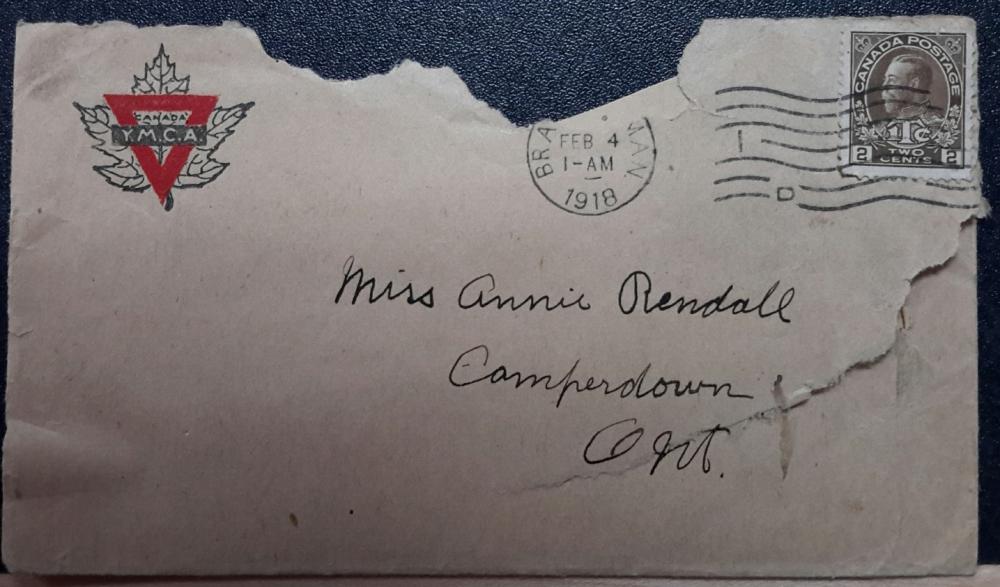 CANADA
Y.M.C.A.
FEB 4
1-AM
1918
I
D
CANADA POSTAGE
1TC
2 TWO CENTS 2
Miss Annie Rendall
Camperdown
Ont.